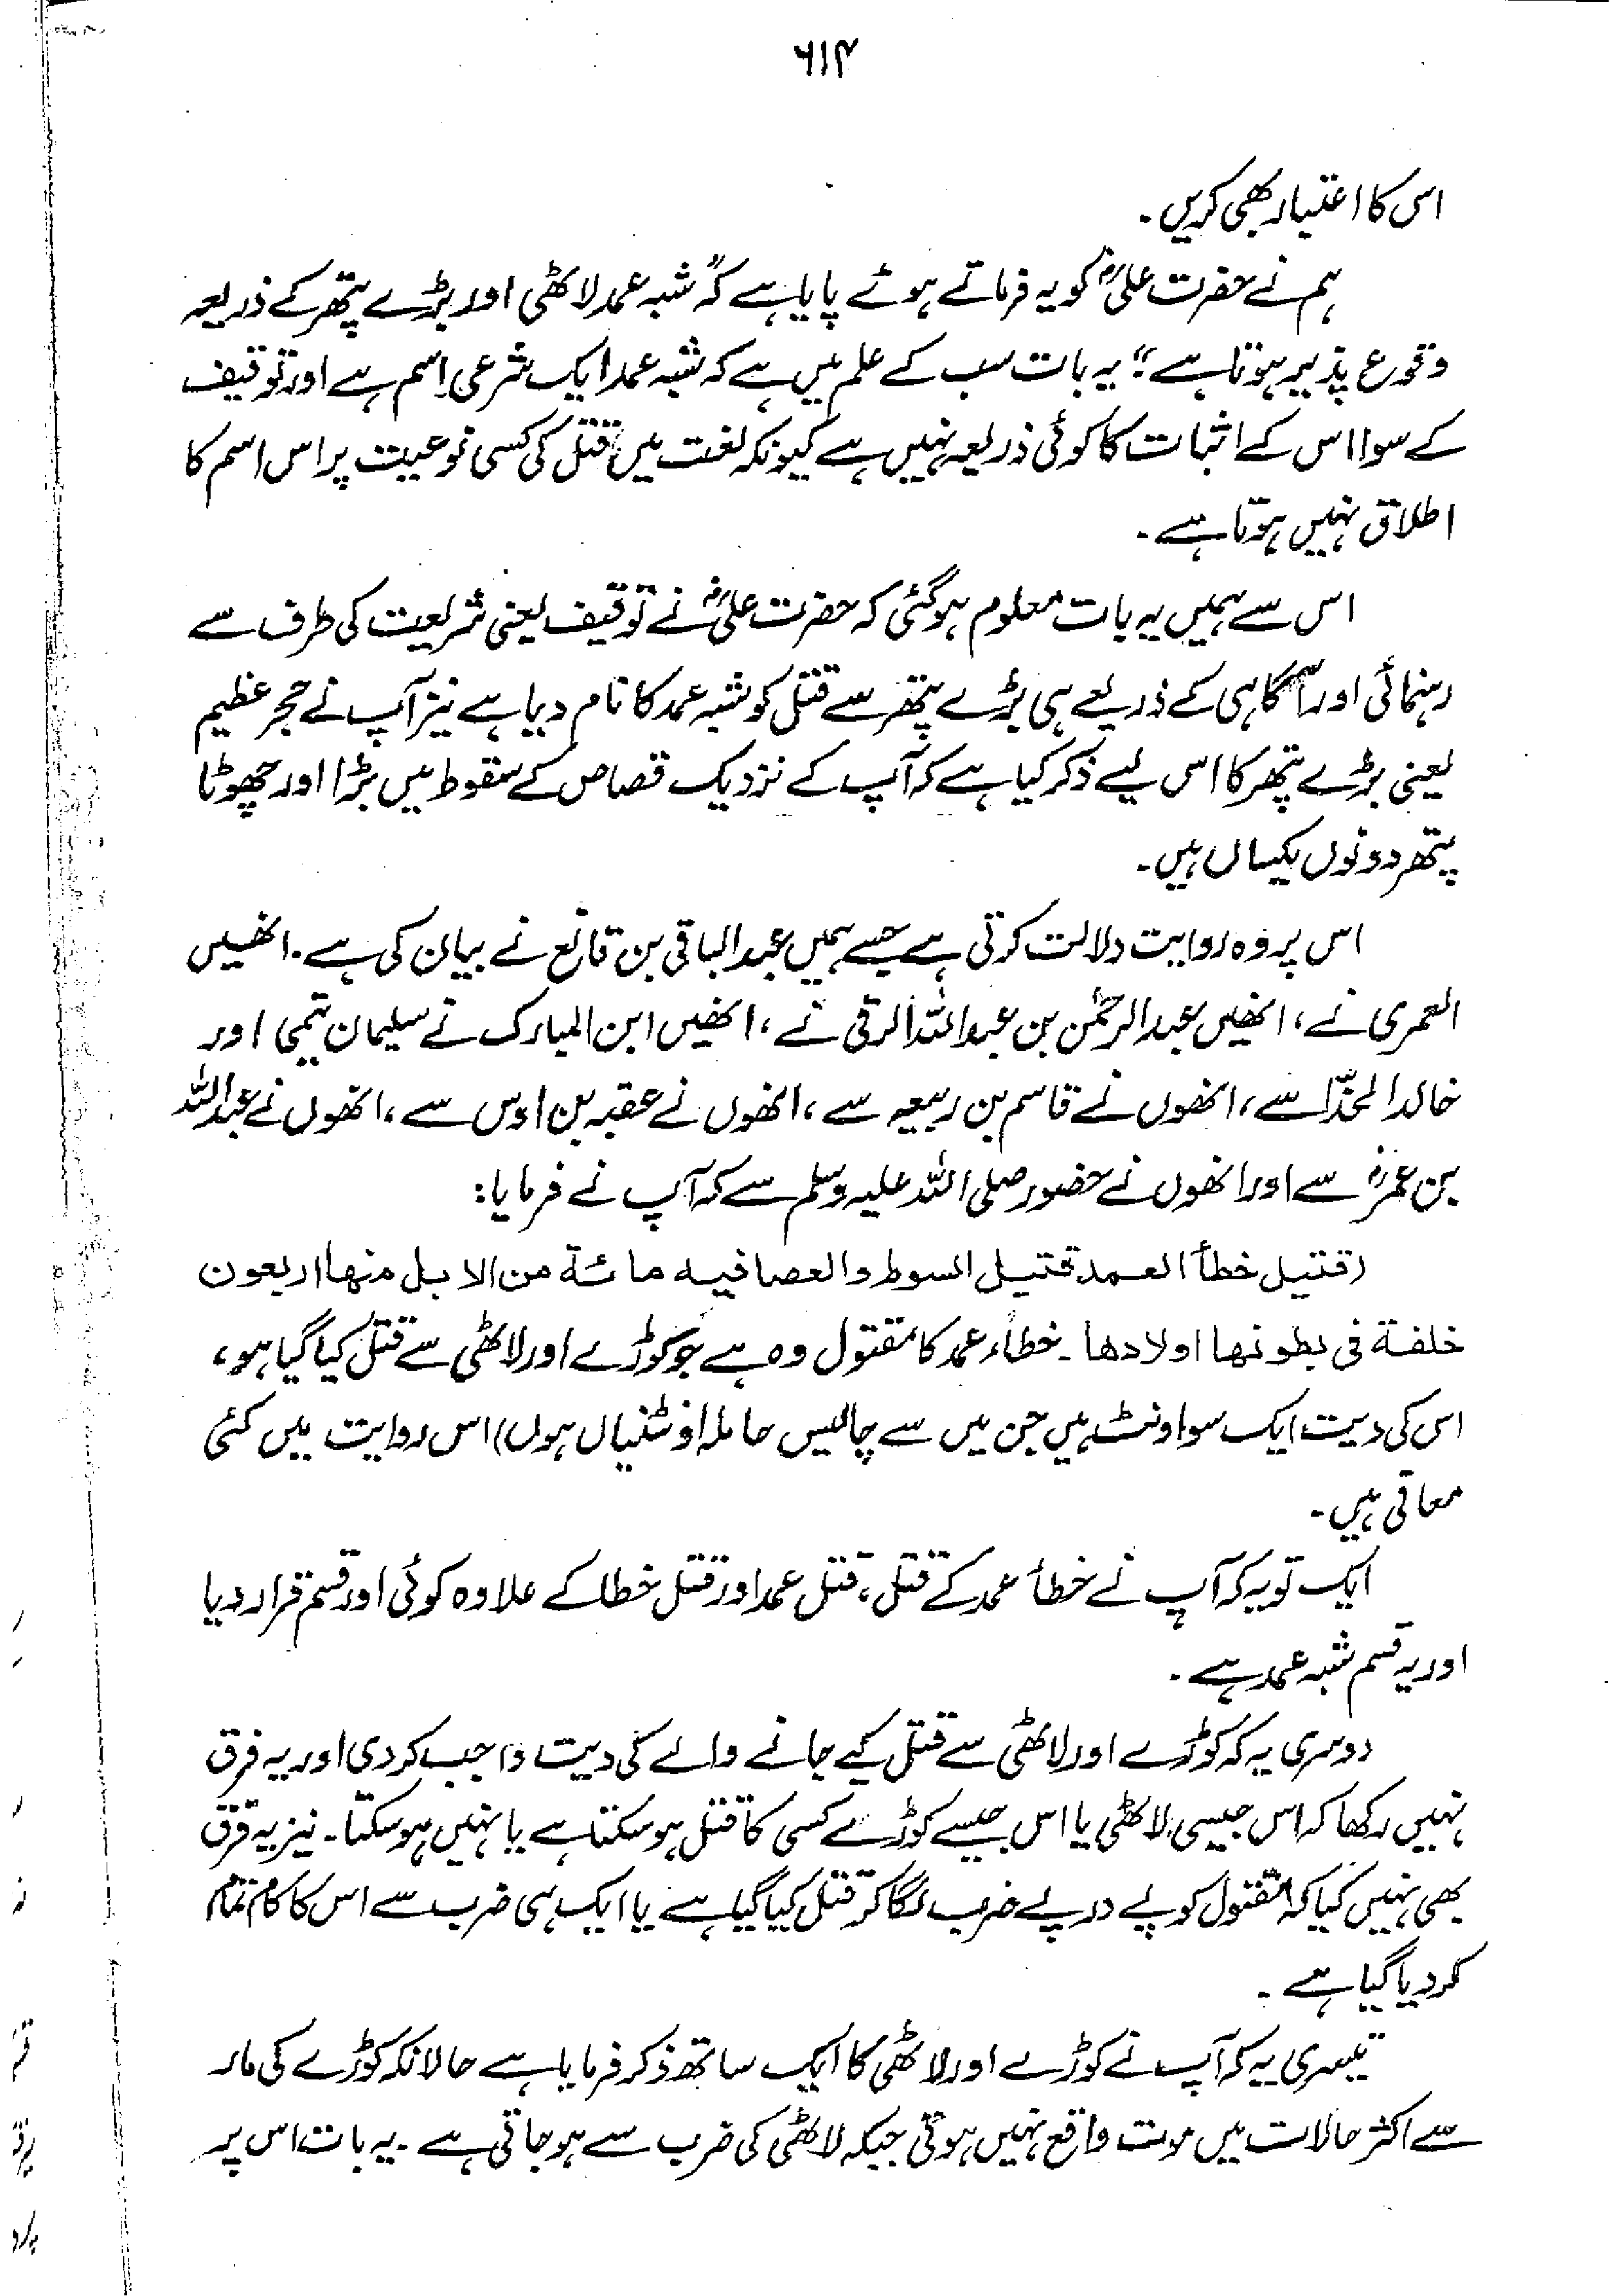 ۶۱۴
اس کا اعتبار بھی کریں۔
ہم نے حضرت علیؓ کو یہ فرماتے ہوئے پایا ہے کہ "شبہ عمد لاٹھی اور بڑے پتھر کے ذریعہ
وقوع پذیر ہوتا ہے" یہ بات سب کے علم میں ہے کہ شبہ عمد ایک شرعی اسم ہے اور توقیف
کے سوا اس کے اثبات کا کوئی ذریعہ نہیں ہے کیونکہ لغت میں قتل کی کسی نوعیت پر اس اسم کا
اطلاق نہیں ہوتا ہے۔
اس سے ہمیں یہ بات معلوم ہوگئی کہ حضرت علیؓ نے توقیف یعنی شریعت کی طرف سے
رہنمائی اور آگاہی کے ذریعے ہی بڑے پتھر سے قتل کو شبہ عمد کا نام دیا ہے نیز آپ نے حجر عظیم
یعنی بڑے پتھر کا اس لیے ذکر کیا ہے کہ آپ کے نزدیک قصاص کے سقوط میں بڑا اور چھوٹا
پتھر دونوں یکساں ہیں۔
اس پر وہ روایت دلالت کرتی ہے جسے ہمیں عبدالباقی بن قانع نے بیان کی ہے۔ انھیں
المعمری نے، انھیں عبدالرحمٰن بن عبداللہ الرقی نے، انھیں ابن المبارک نے سلیمان تیمی اور
خالد الحذّاء سے، انھوں نے قاسم بن ربیعہ سے، انھوں نے عقبہ بن اوس سے، انھوں نے عبداللہ
بن عمرؓ سے اور انھوں نے حضور صلی اللہ علیہ وسلم سے کہ آپ نے فرمایا:
(قتیل خطأ العمد قتیل السوط والعصا فیه مائة من الابل منها اربعون
خلفة فی بطونها اولادها۔ خطاء عمد کا مقتول وہ ہے جو کوڑے اور لاٹھی سے قتل کیا گیا ہو،
اس کی دیت ایک سو اونٹ ہیں جن میں سے چالیس حاملہ اونٹنیاں ہوں) اس روایت میں کئی
معانی ہیں۔
ایک تو یہ کہ آپ نے خطأ عمد کے قتل، قتل عمد اور قتل خطا کے علاوہ کوئی اور قسم قرار دیا
اور یہ قسم شبہ عمد ہے۔
دوسری یہ کہ کوڑے اور لاٹھی سے قتل کیے جانے والے کی دیت واجب کر دی اور یہ فرق
نہیں رکھا کہ اس جیسی لاٹھی یا اس جیسے کوڑے کسی کا قتل ہو سکتا ہے یا نہیں ہو سکتا۔ نیز یہ فرق
بھی نہیں کیا کہ مقتول کو پے در پے ضرب لگا کر قتل کیا گیا ہے یا ایک ہی ضرب سے اس کا کام تمام
کر دیا گیا ہے۔
تیسری یہ کہ آپ نے کوڑے اور لاٹھی کا ایک ساتھ ذکر فرمایا ہے حالانکہ کوڑے کی مار
سے اکثر حالات میں موت واقع نہیں ہوتی جبکہ لاٹھی کی ضرب سے ہو جاتی ہے۔ یہ بات اس پر